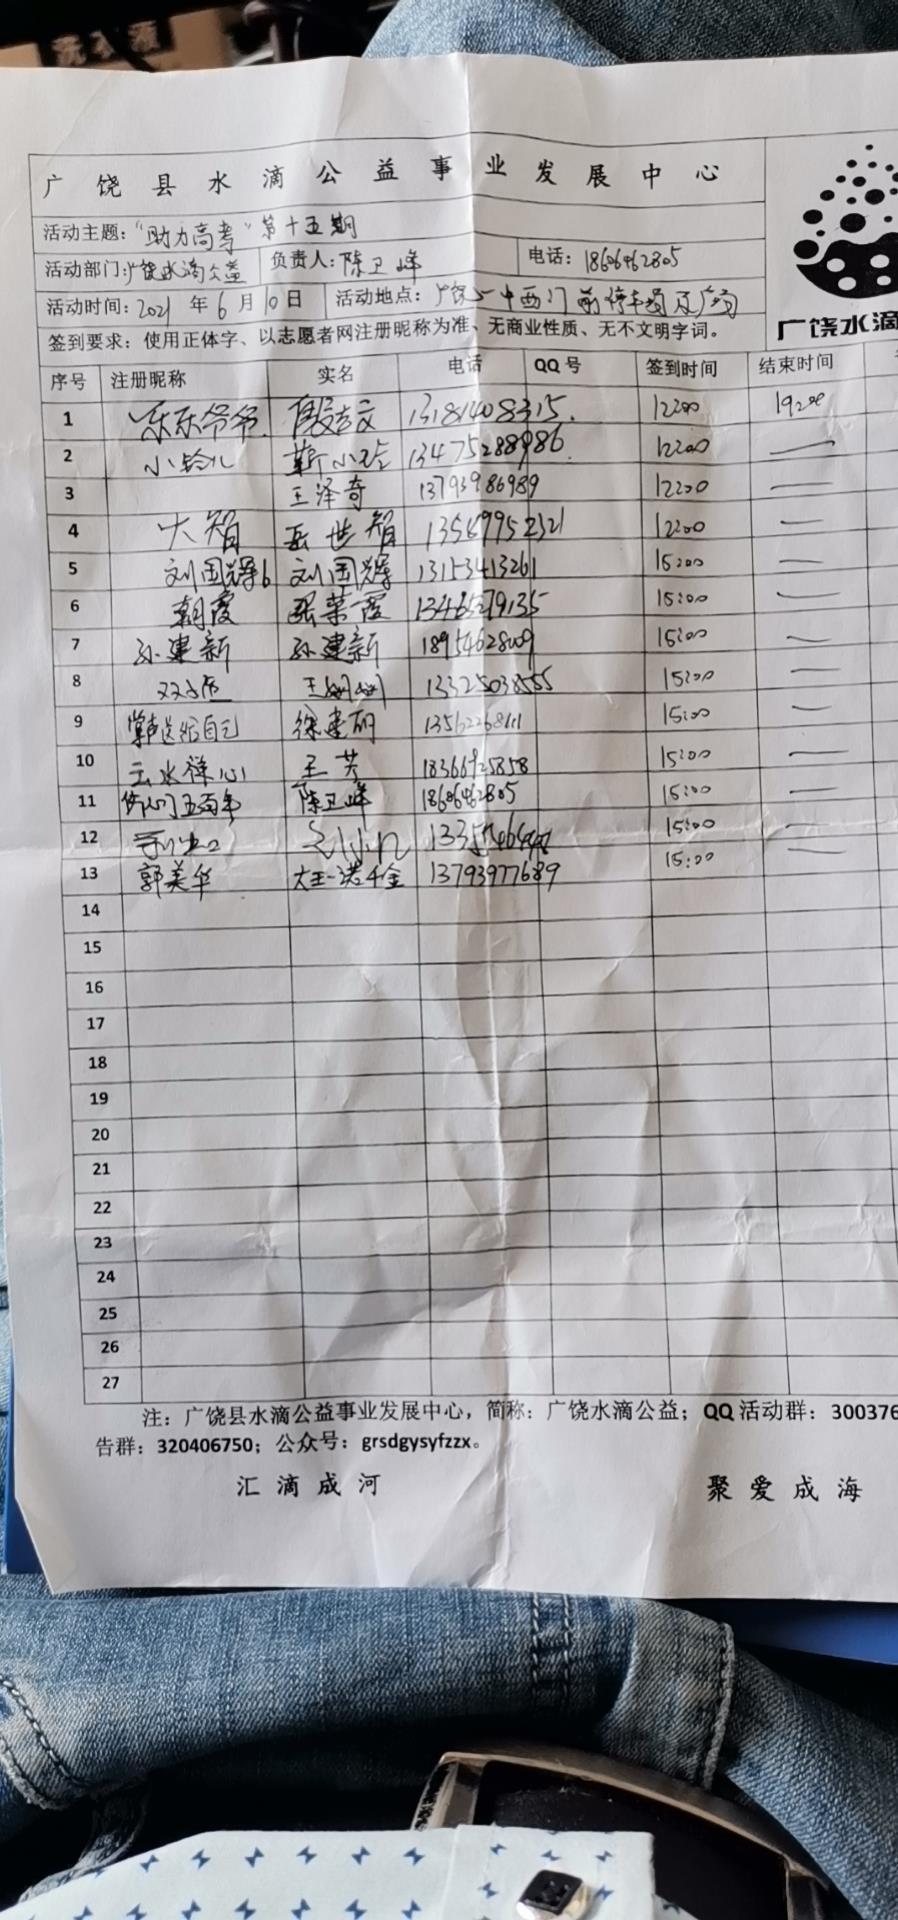 广饶县水滴公益事业发展中心
活动主题：“助力高考”第十五期
活动部门：广饶水滴公益 负责人：陈卫峰 电话：18606462805
活动时间：2021年6月10日 活动地点：广饶一中西门前停车场及广场
广饶水滴
签到要求：使用正体字、以志愿者网注册昵称为准、无商业性质、无不文明字词。
序号 注册昵称 实名 电话 QQ号 签到时间 结束时间
1 乐乐爷爷 13181408315 12:00 19:00
2 小铃儿 靳小玲 13475288986 12:00
3 王泽奇 13793986989 12:00
4 大智 岳世智 12:00
5 刘国辉6 刘国辉 13153413261 15:00
6 朝霞 张荣霞 15:00
7 孙建新 孙建新 15:00
8 13325038555 15:00
9 掌声送给自己 徐建丽 15:00
10 云水禅心 王芳 18366925858 15:00
11 陈卫峰 18606462805 15:00
12 15:00
13 郭美华 大王一诺千金 13793977689 15:00
14
15
16
17
18
19
20
21
22
23
24
25
26
27
注：广饶县水滴公益事业发展中心，简称：广饶水滴公益；QQ活动群：300376
告群：320406750；公众号：grsdgysyfzzx。
汇滴成河 聚爱成海